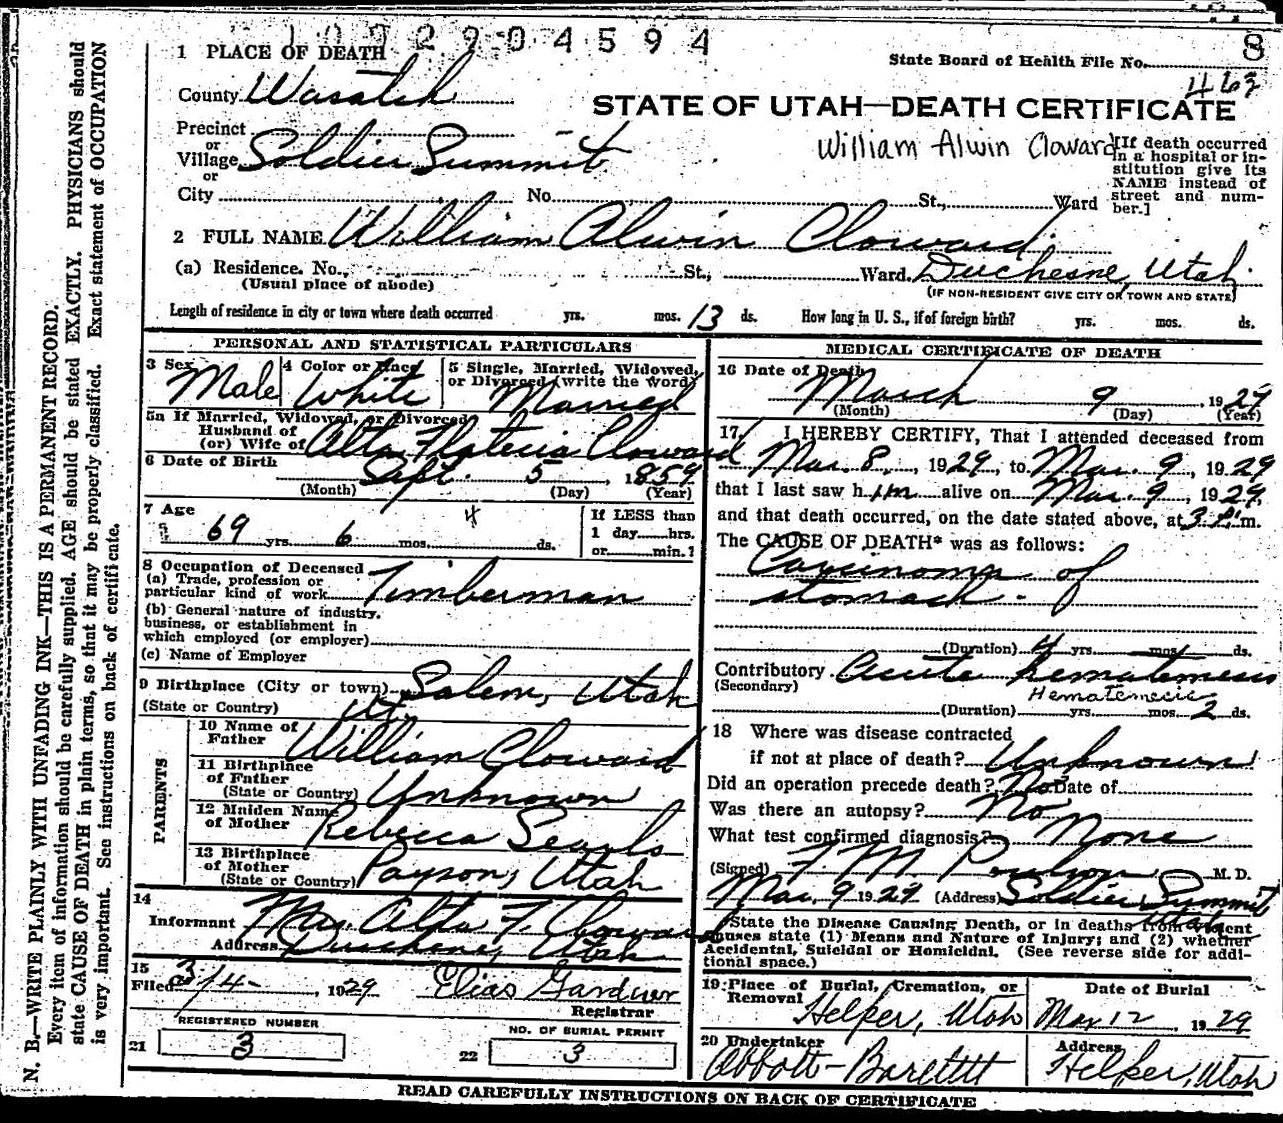 1092904594
8
1 PLACE OF DEATH
State Board of Health File No.
463
County Wasatch
STATE OF UTAH—DEATH CERTIFICATE
Precinct
or
Village Soldier Summit
or
City No. St., Ward
William Alwin Cloward
[If death occurred in a hospital or institution give its NAME instead of street and number.]
2 FULL NAME William Alwin Cloward
(a) Residence. No. St., Ward. Duchesne, Utah
(Usual place of abode)
(IF NON-RESIDENT GIVE CITY OR TOWN AND STATE)
Length of residence in city or town where death occurred yrs. mos. 13 ds. How long in U. S., if of foreign birth? yrs. mos. ds.
PERSONAL AND STATISTICAL PARTICULARS
3 Sex Male
4 Color or Race White
5 Single, Married, Widowed, or Divorced (write the word) Married
5a If Married, Widowed, or Divorced
Husband of
(or) Wife of Alta Cloward
6 Date of Birth Sept. 5, 1859
(Month) (Day) (Year)
7 Age
69 yrs. 6 mos. 4 ds.
If LESS than
1 day hrs.
or min.?
8 Occupation of Deceased
(a) Trade, profession or
particular kind of work Timberman
(b) General nature of industry,
business, or establishment in
which employed (or employer)
(c) Name of Employer
9 Birthplace (City or town) Salem, Utah
(State or Country) Ut
PARENTS
10 Name of Father William Cloward
11 Birthplace of Father
(State or Country) Unknown
12 Maiden Name of Mother Rebecca Searls
13 Birthplace of Mother
(State or Country) Payson, Utah
14
Informant Mrs. Alta F. Cloward
Address Duchesne, Utah
15
Filed 3/14- , 1929 Elias Gardner
Registrar
REGISTERED NUMBER
21 3
NO. OF BURIAL PERMIT
22 3
MEDICAL CERTIFICATE OF DEATH
16 Date of Death
March 9, 1929
(Month) (Day) (Year)
17. I HEREBY CERTIFY, That I attended deceased from
Mar. 8, 1929, to Mar. 9, 1929
that I last saw him alive on Mar. 9, 1929
and that death occurred, on the date stated above, at 3 P. m.
The CAUSE OF DEATH* was as follows:
Carcinoma of
stomach.
(Duration) 4 yrs. mos. ds.
Contributory Acute hematemesis
(Secondary) Hematemesis
(Duration) yrs. mos. 2 ds.
18 Where was disease contracted
if not at place of death? Unknown
Did an operation precede death? No Date of
Was there an autopsy? No
What test confirmed diagnosis? None
(Signed) F M Poulson M. D.
Mar. 9 1929 (Address) Soldier Summit
Utah
*State the Disease Causing Death, or in deaths from Violent
Causes state (1) Means and Nature of Injury; and (2) whether
Accidental, Suicidal or Homicidal. (See reverse side for addi-
tional space.)
19 Place of Burial, Cremation, or Removal Helper, Utah
Date of Burial
Mar 12, 1929
20 Undertaker
Address
Helper, Utah
READ CAREFULLY INSTRUCTIONS ON BACK OF CERTIFICATE
N. B.—WRITE PLAINLY WITH UNFADING INK—THIS IS A PERMANENT RECORD.
Every item of information should be carefully supplied. AGE should be stated EXACTLY. PHYSICIANS should
state CAUSE OF DEATH in plain terms, so that it may be properly classified. Exact statement of OCCUPATION
is very important. See instructions on back of certificate.